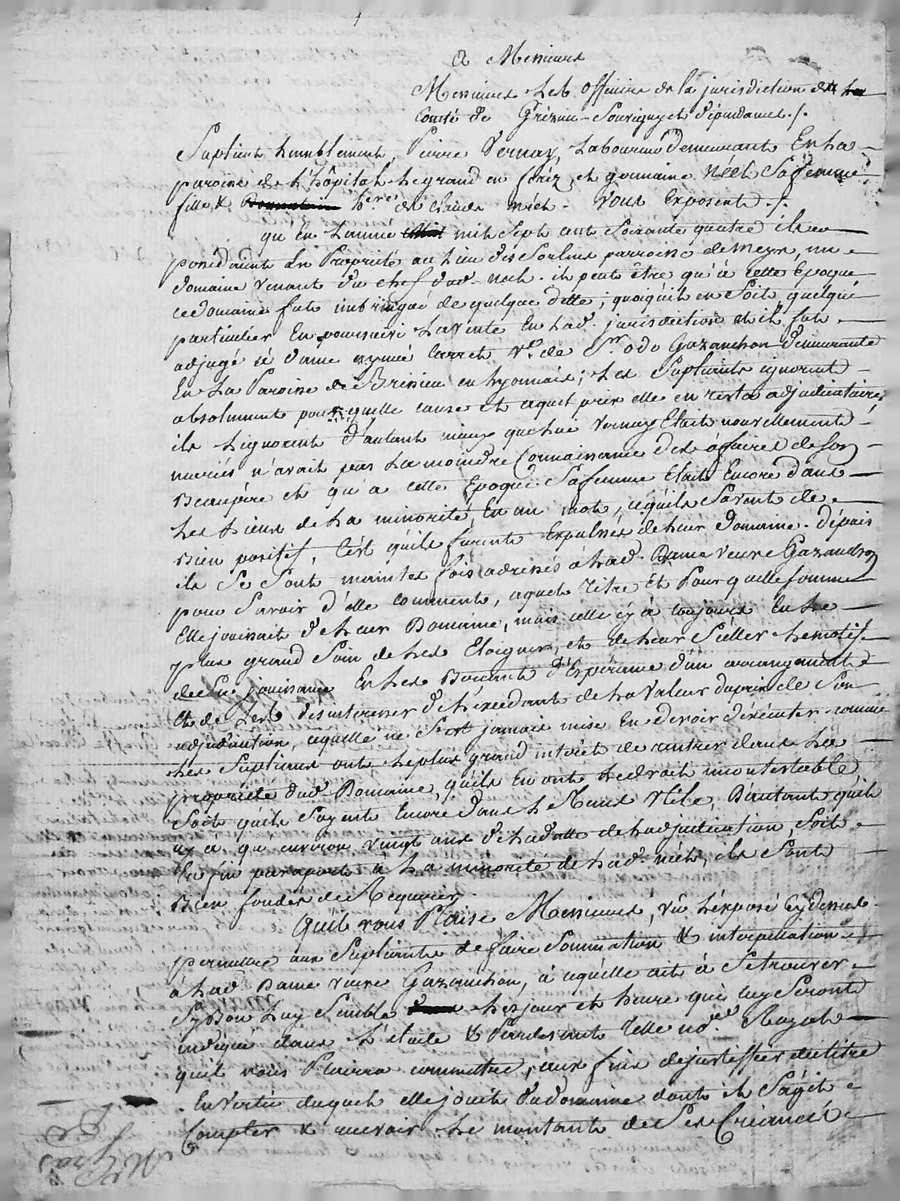 A Messieurs
Messieurs les officiers de la jurisdiction de la
Comté de Grézieu - Souvigny et dépendances ./.
Suplient humblement, Pierre Vernay, laboureur demeurant En la
paroisse de L'hôpital Le grand en foréz, et Néél Sa femme
fille & here de Claude néél. Vous Exposent ./.
qu'En L'année mil Sept cent Soixante quatre ils
possedaient En Propriété au Lieu des parroisse de meys, un
domaine venant du chef dud. néél. il peut être qu'à cette Epoque
ce domaine fut imbringué de quelque dette; quoiqu'il en Soit, quelque
particulier En poursuivi La vente En lad. jurisdiction et il fut
adjugé à dame Carret Ve. de Sr. odo Gazanchon demeurante
En La Paroisse de en Lyonnais; Les Suplians ignorent
absolument pour quelle cause Et aquel prix elle en resta adjudicataire,
ils L'ignorent d'autant mieux que Led Vernay Etait nouvellement
marié n'avait pas La moindre Connaissance des affaires de Son
Beaupère et qu'a cette Epoque Sa femme Etait Encore dans
Les Liens de La minorité, En un mot, ce qu'ils Savent de
Bien positif, C'est qu'ils furent Expulsés de Leur Domaine. dépuis
ils Se Sont maintes fois adressés à Lad. Dame veuve Gazanchon
pour Savoir d'elle comment, aquel titre Et Pour quelle Somme
Elle jouissait de Leur Domaine, mais celle cy à toujours Eu Le
plus grand Soin de Les Eloigner, et de Leur Le motif
de Sa jouissance En Les Berçant d'Espérance d'un arrangement
Et de Les désinteresser de L'Excedant de La valeur du prix de Son
adjudication, aquelle ne S'est jamais mise En devoir d'éxecuter. comme
Les Suplians ont Le plus grand intérêt de rentrer dans La
propriété dud. Domaine, qu'ils En ont Le droit incontestable
Soit qu'ils Soyent Encore dans Le tems Utile, D'autant qu'il
n'y a qu'environ vingt ans de La datte de L'adjudication, Soit
En fin par raport à La minorité de Lad. néél, ils Sont
Bien fondés de Requerir
Qu'il vous Plaise Messieurs, vû L'exposé cy dessus
permettre aux Supliants de faire Sommation & interpellation
à Lad. Dame veuve Gazanchon, à aquelle ait à Se trouver
Sy Bon Luy Semble Les jour et heure qui Luy Seront
indiqué dans L'étude & Pardevant telle nore. Royal
qu'il vous Plaira commettre, aux fins de justiffier du titre
En vertu duquel elle jouit du domaine dont il S'agit
Compter & recevoir Le montant de Ses Créances